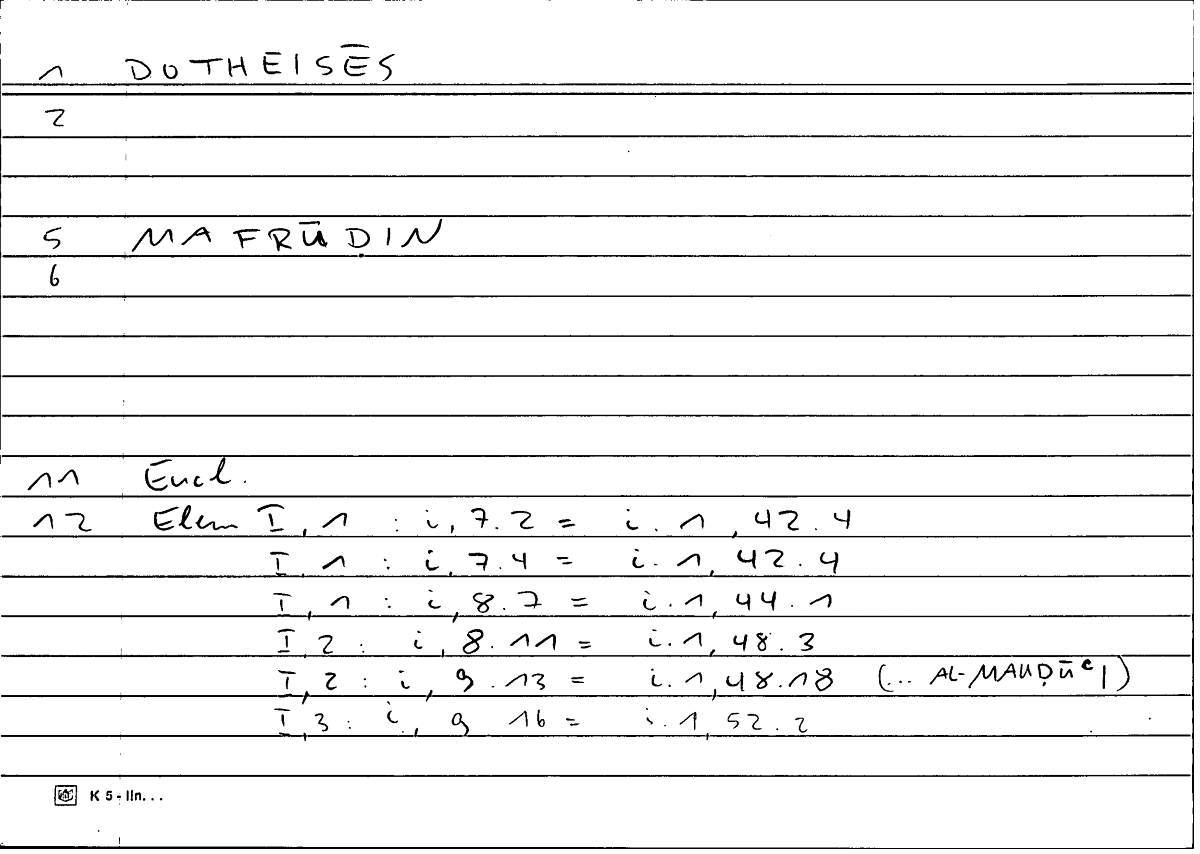 1 DOTHEISĒS
2
5 MAFRŪḌIN
6
11 Eucl.
12 Elem I, 1 : i, 7.2 = i.1, 42.4
I, 1 : i, 7.4 = i.1, 42.4
I, 1 : i, 8.7 = i.1, 44.1
I, 2 : i, 8.11 = i.1, 48.3
I, 2 : i, 9.13 = i.1, 48.18 (... AL-MAUḌŪʿI)
I, 3 : i, 9 16 = i.1, 52.2
K 5 - lin. . .